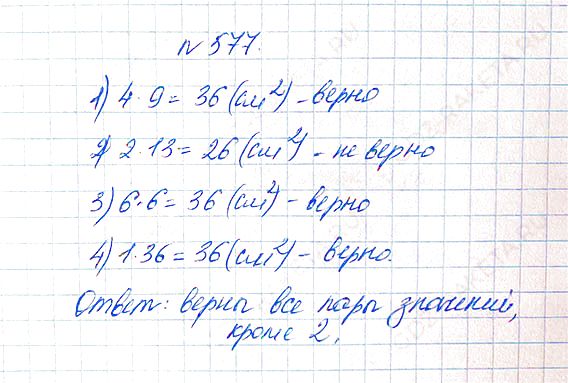 № 577.
1) 4 · 9 = 36 (см²) - верно
2) 2 · 13 = 26 (см²) - не верно
3) 6 · 6 = 36 (см²) - верно
4) 1 · 36 = 36 (см²) - верно.
Ответ: верны все пары значений,
кроме 2.